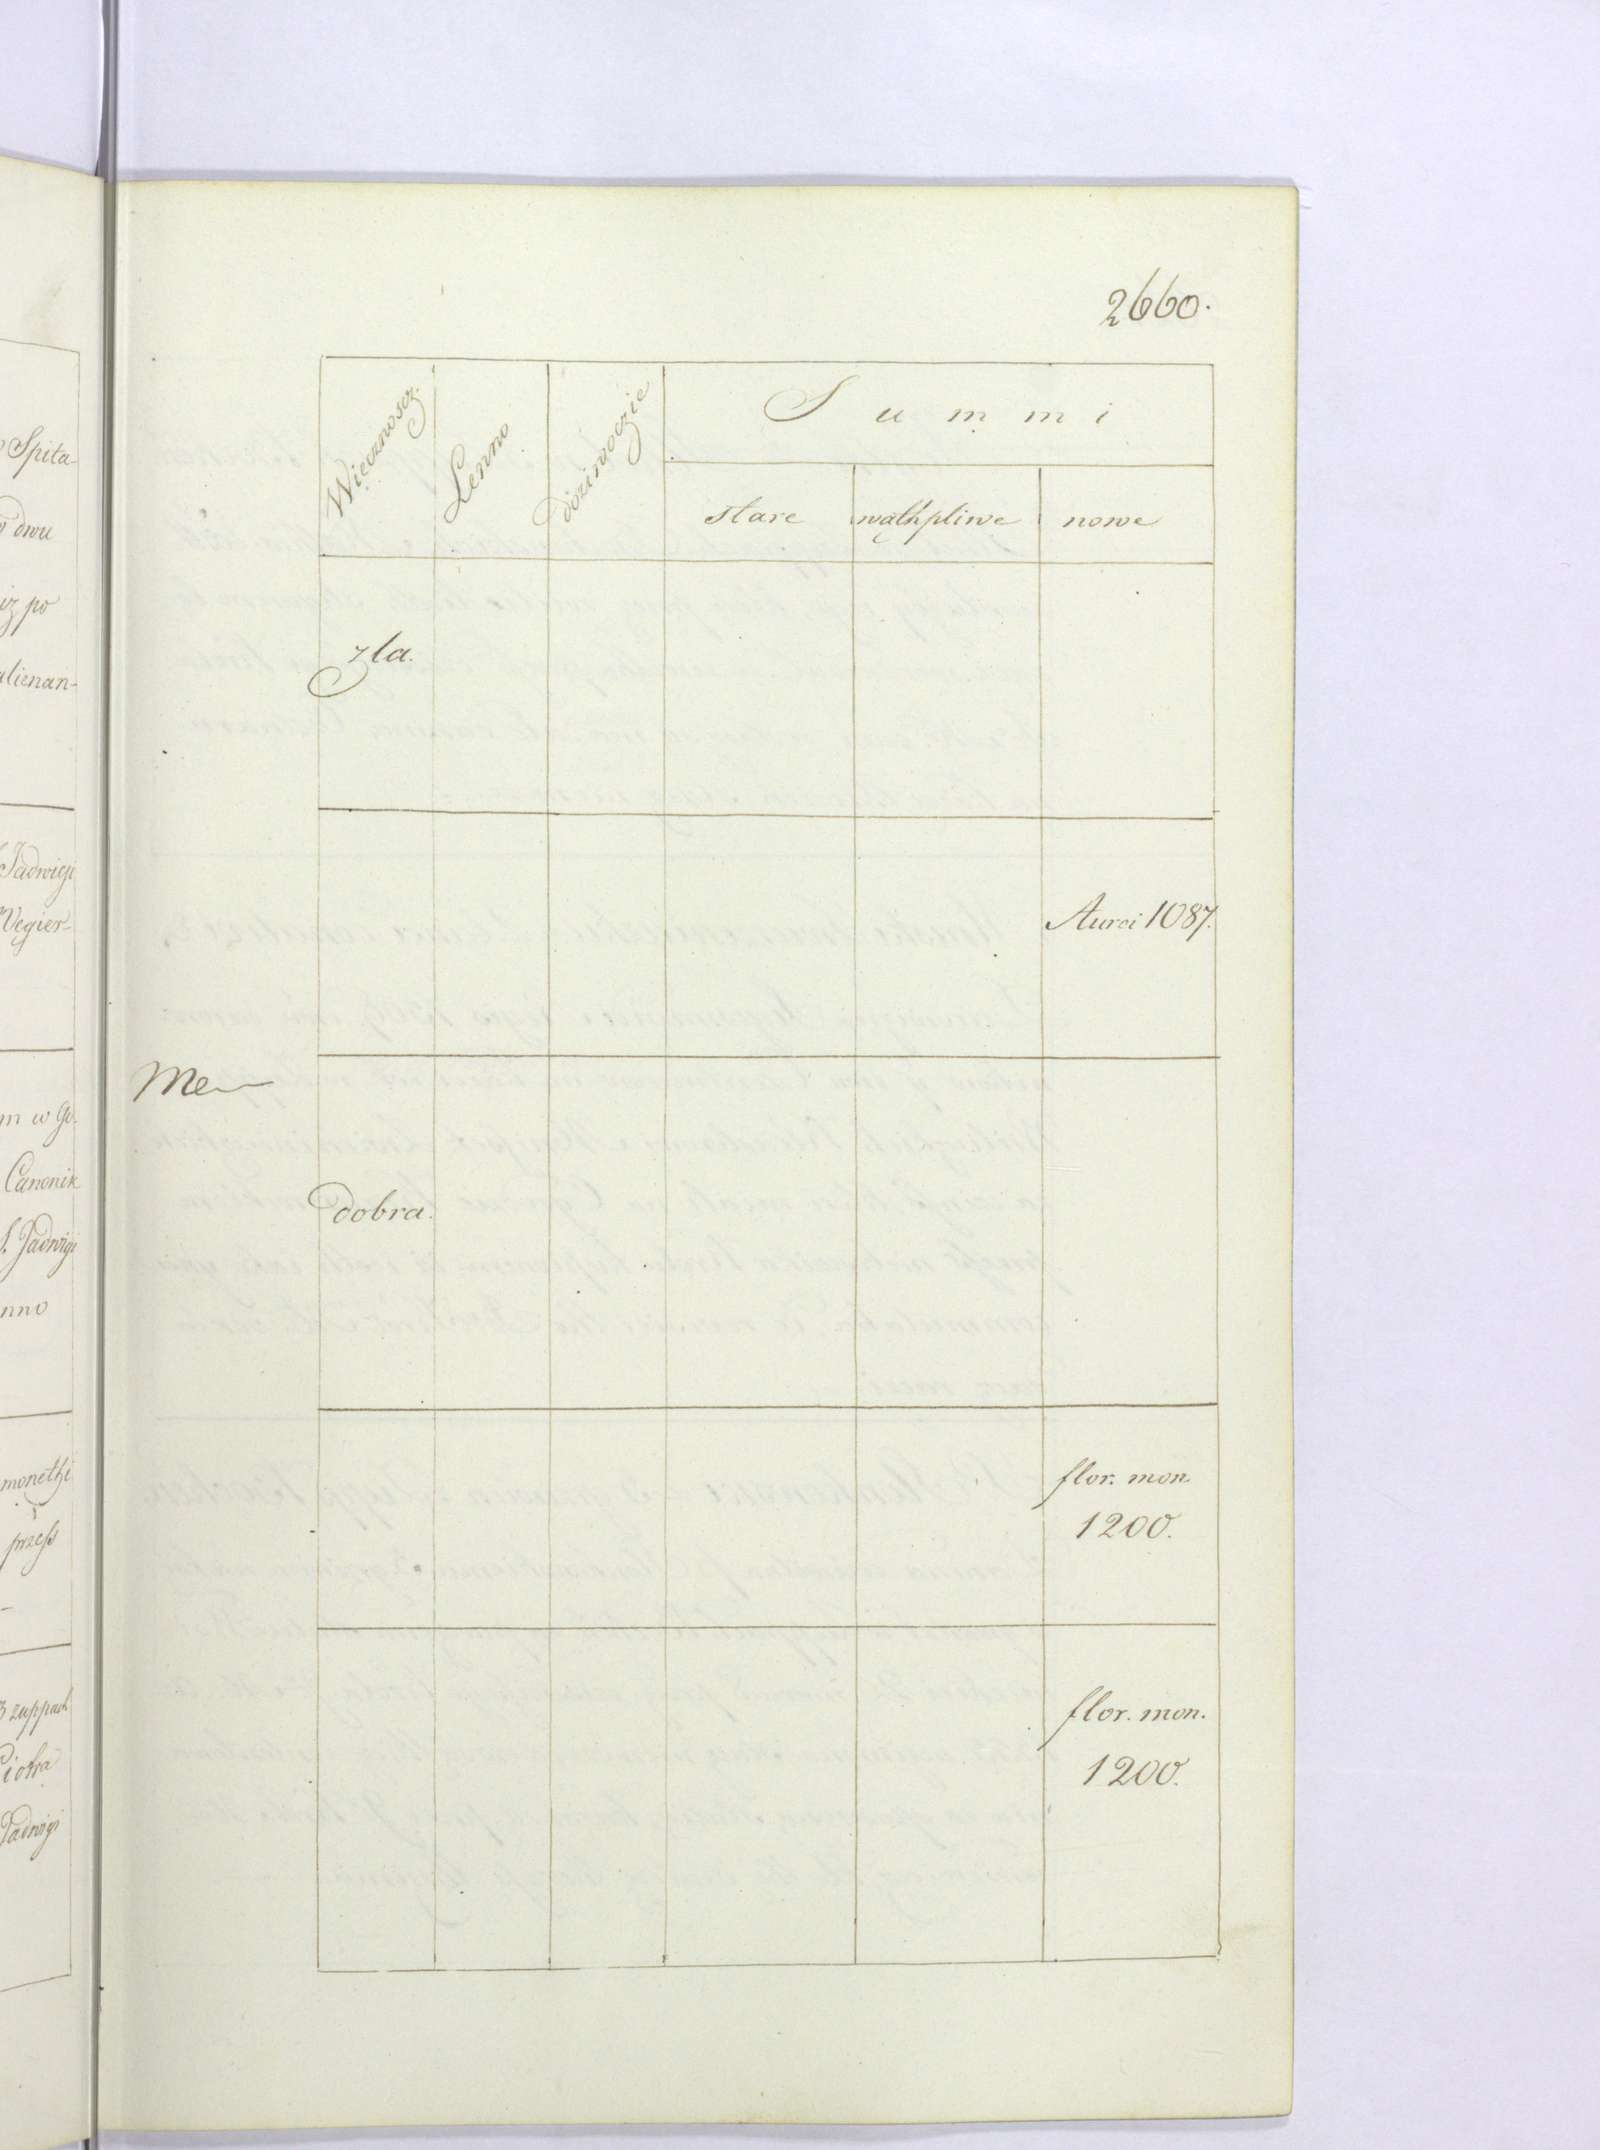 2660.
Wiecznoscz.
Lenno
dozinoczie
Summi
stare
wąthpliwe
nowe
zla.
Aurei 1087.
dobra.
flor. mon.
1200.
flor. mon.
1200.
Spita-
dwu
iz po
alienan-
Jadwigi
Vegier-
m w Go.
Canonik
S. Jadwigi
nno
monethi
przess
zuppach
Piotra
Jadwigi